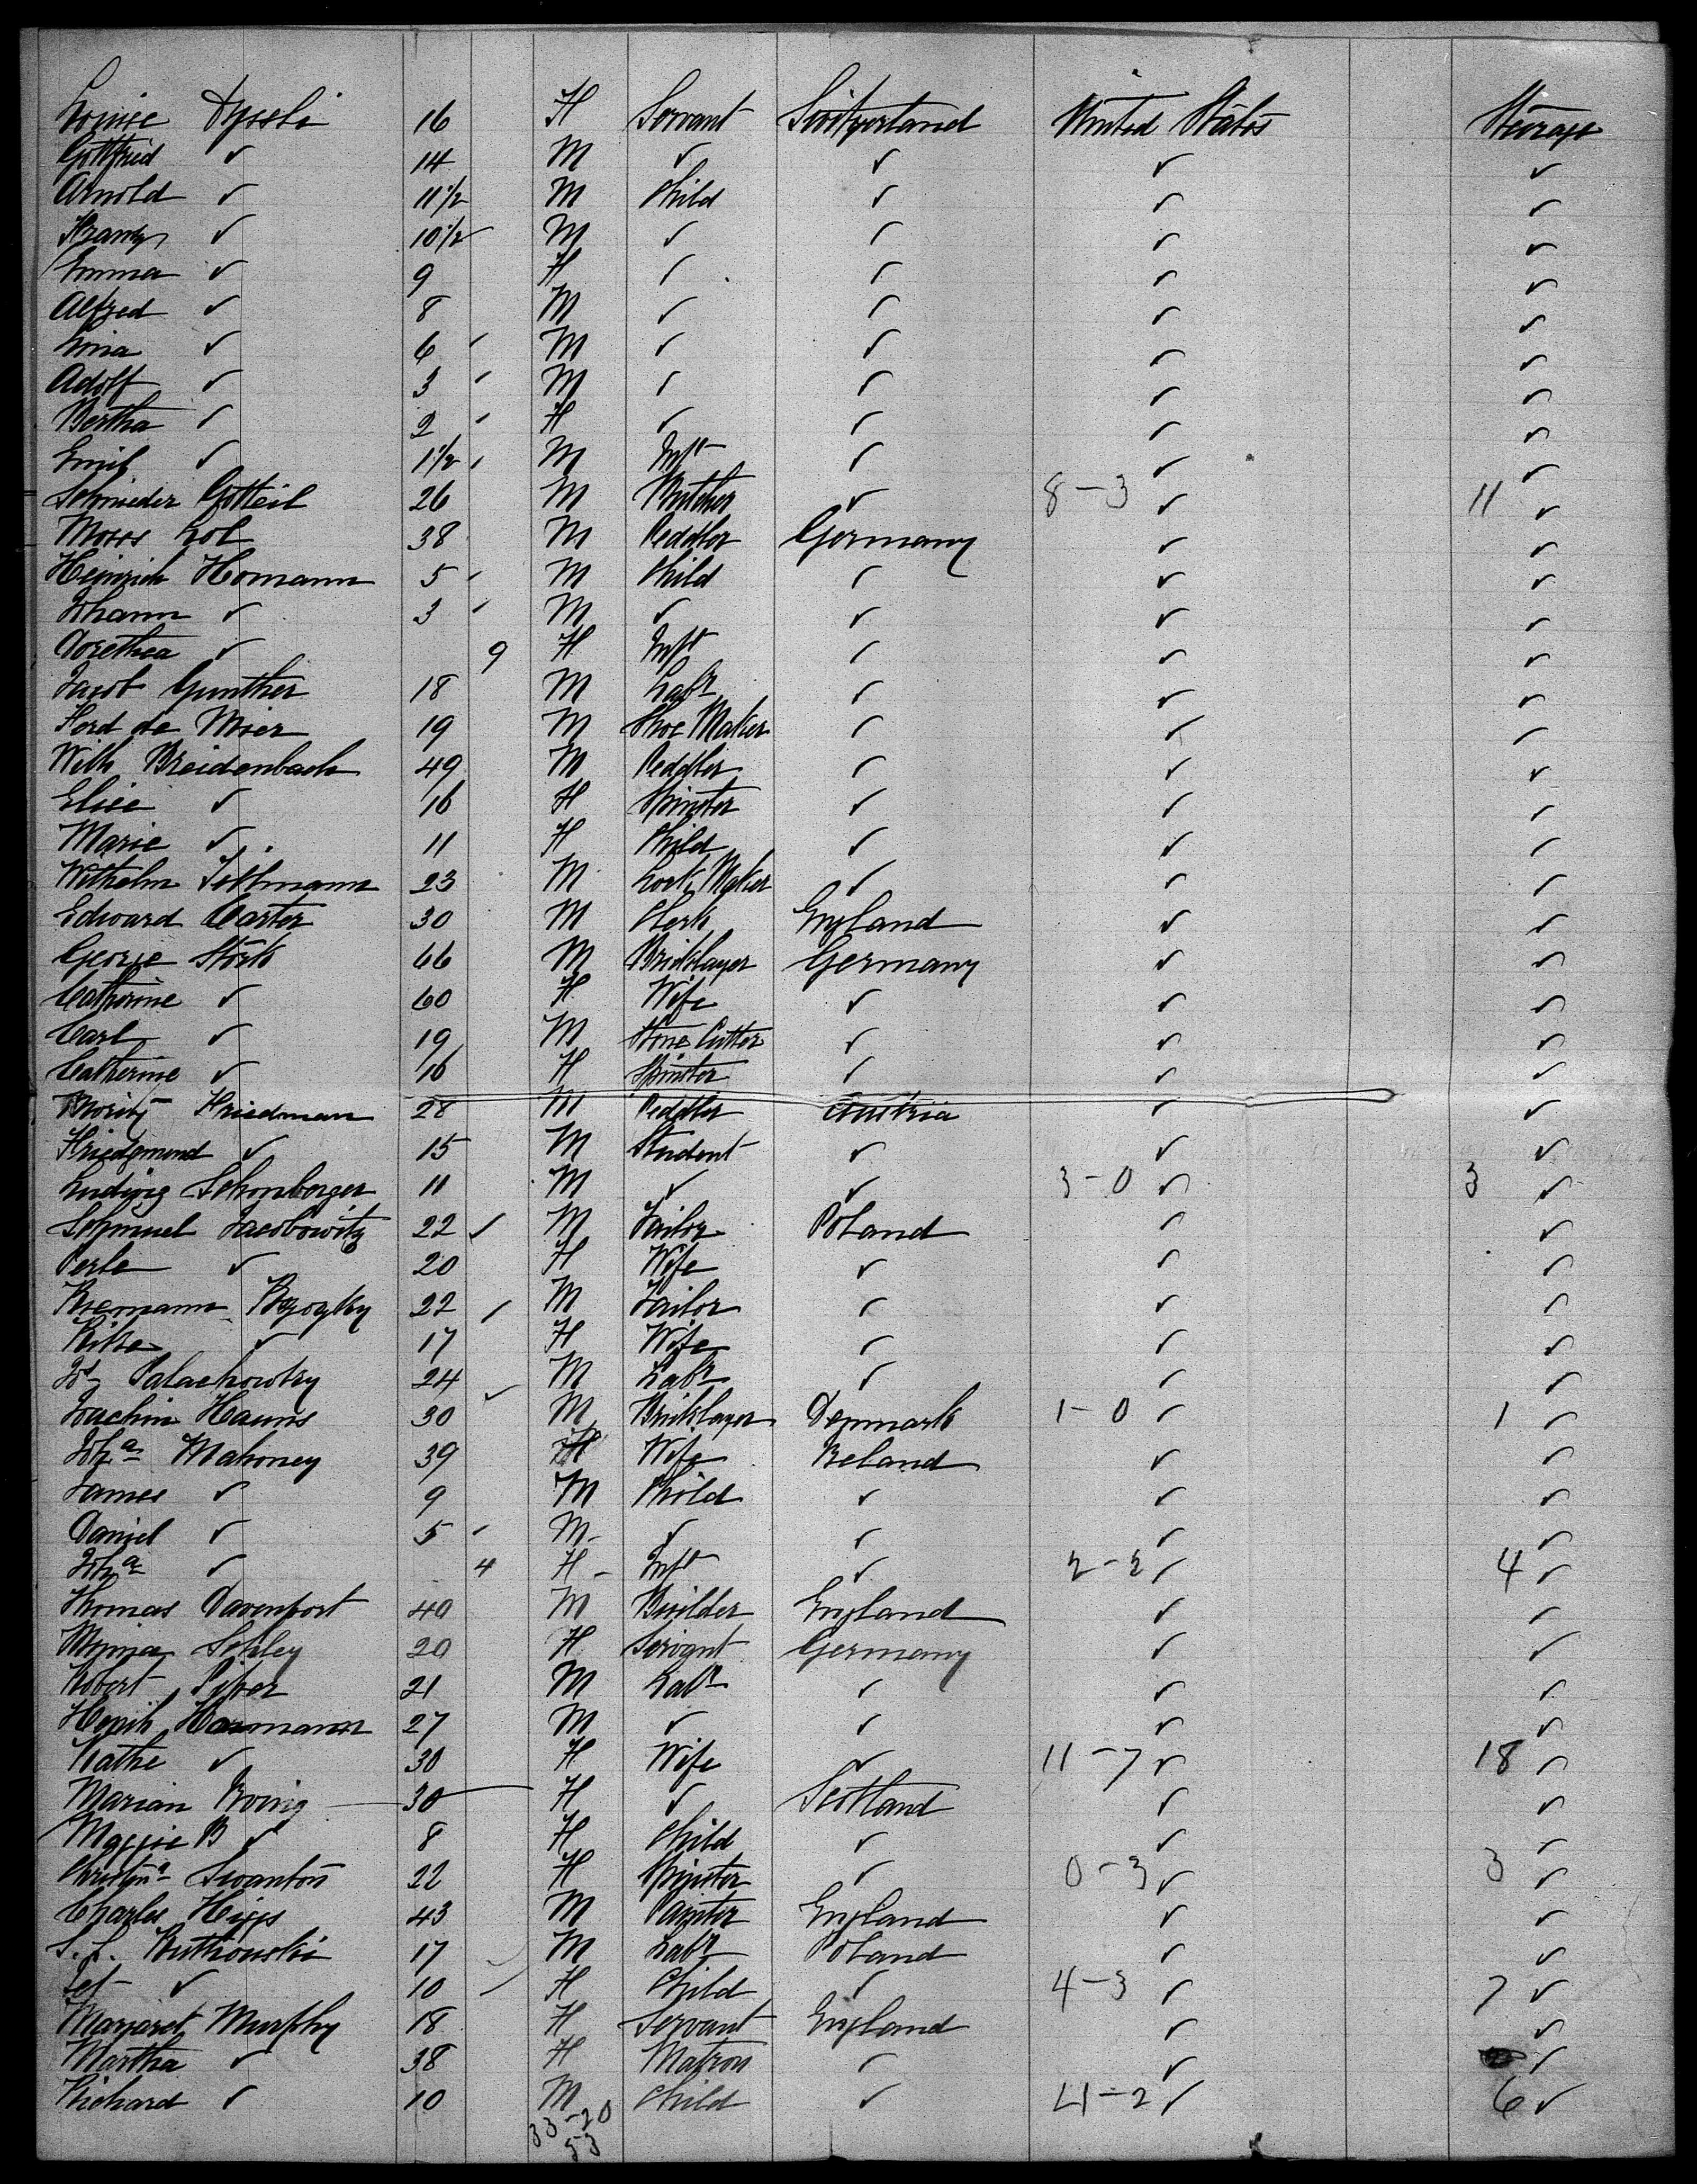 Louise Dyssli 16 F Servant Switzerland United States Steerage
Gottfried ✓ 14 M ✓ ✓ ✓ ✓
Arnold ✓ 11 1/2 M Child ✓ ✓ ✓
Franz ✓ 10 1/2 M ✓ ✓ ✓ ✓
Emma ✓ 9 F ✓ ✓ ✓ ✓
Alfred ✓ 8 M ✓ ✓ ✓ ✓
Lina ✓ 6 M ✓ ✓ ✓ ✓
Adolf ✓ 3 M ✓ ✓ ✓ ✓
Bertha ✓ 2 F ✓ ✓ ✓ ✓
Emil ✓ 1 1/2 M Inft ✓ ✓ ✓
Schnieder Gotteil 26 M Butcher ✓ 8-3 ✓ 11 ✓
Moses Lob 38 M Peddler Germany ✓ ✓
Heinrich Homann 5 M Child ✓ ✓ ✓
Johann ✓ 3 M ✓ ✓ ✓ ✓
Dorethea ✓ 9 F Inft ✓ ✓ ✓
Jacob Gunther 18 M Labr ✓ ✓ ✓
Ferd de Mier 19 M Shoe Maker ✓ ✓ ✓
Wilh Breidenbach 49 M Peddler ✓ ✓ ✓
Elise ✓ 16 F Spinster ✓ ✓ ✓
Marie ✓ 11 F Child ✓ ✓ ✓
Wilhelm 23 M Lock Maker ✓ ✓ ✓
Edward Carter 30 M Clerk England ✓ ✓
George Stork 66 M Bricklayer Germany ✓ ✓
Catherine ✓ 60 F Wife ✓ ✓ ✓
Carl ✓ 19 M Stone Cutter ✓ ✓ ✓
Catherine ✓ 16 F Spinster ✓ ✓ ✓
Moritz Friedman 28 M Peddler Austria ✓ ✓
Friedgmund ✓ 15 M Student ✓ ✓ ✓
Ludwig Schonberger 11 M ✓ ✓ 3-0 ✓ 3 ✓
Schmuel Jacobowitz 22 ✓ M Tailor Poland ✓ ✓
Perle ✓ 20 F Wife ✓ ✓ ✓
22 M Tailor ✓ ✓ ✓
Rike ✓ 17 F Wife ✓ ✓ ✓
24 M Labr ✓ ✓ ✓
Joachin Hanns 30 ✓ M Bricklayer Denmark 1-0 ✓ 1 ✓
Joha Mahoney 39 F Wife Ireland ✓ ✓
James ✓ 9 M Child ✓ ✓ ✓
Daniel ✓ 5 M ✓ ✓ ✓ ✓
Joha ✓ 4 F Inft ✓ 2-2 ✓ 4 ✓
Thomas Davenport 40 M Builder England ✓ ✓
Minna Schley 20 F Servant Germany ✓ ✓
Robert 21 M Labr ✓ ✓ ✓
Harmann 27 M ✓ ✓ ✓ ✓
Kathe ✓ 30 F Wife ✓ 11-7 ✓ 18 ✓
Marian Irving 30 F ✓ Scotland ✓ ✓
Maggie B ✓ 8 F Child ✓ ✓ ✓
Christina Swanton 22 F Spinster ✓ 0-3 ✓ 3 ✓
Charles Higgs 43 M Painter England ✓ ✓
S. L. Rutkowski 17 ✓ M Labr Poland ✓ ✓
✓ 10 ✓ F Child ✓ 4-3 ✓ 7 ✓
Margaret Murphy 18 F Servant England ✓ ✓
Martha ✓ 38 F Matron ✓ ✓ ✓
Richard ✓ 10 M Child ✓ 4-2 ✓ 6 ✓
33-20
53